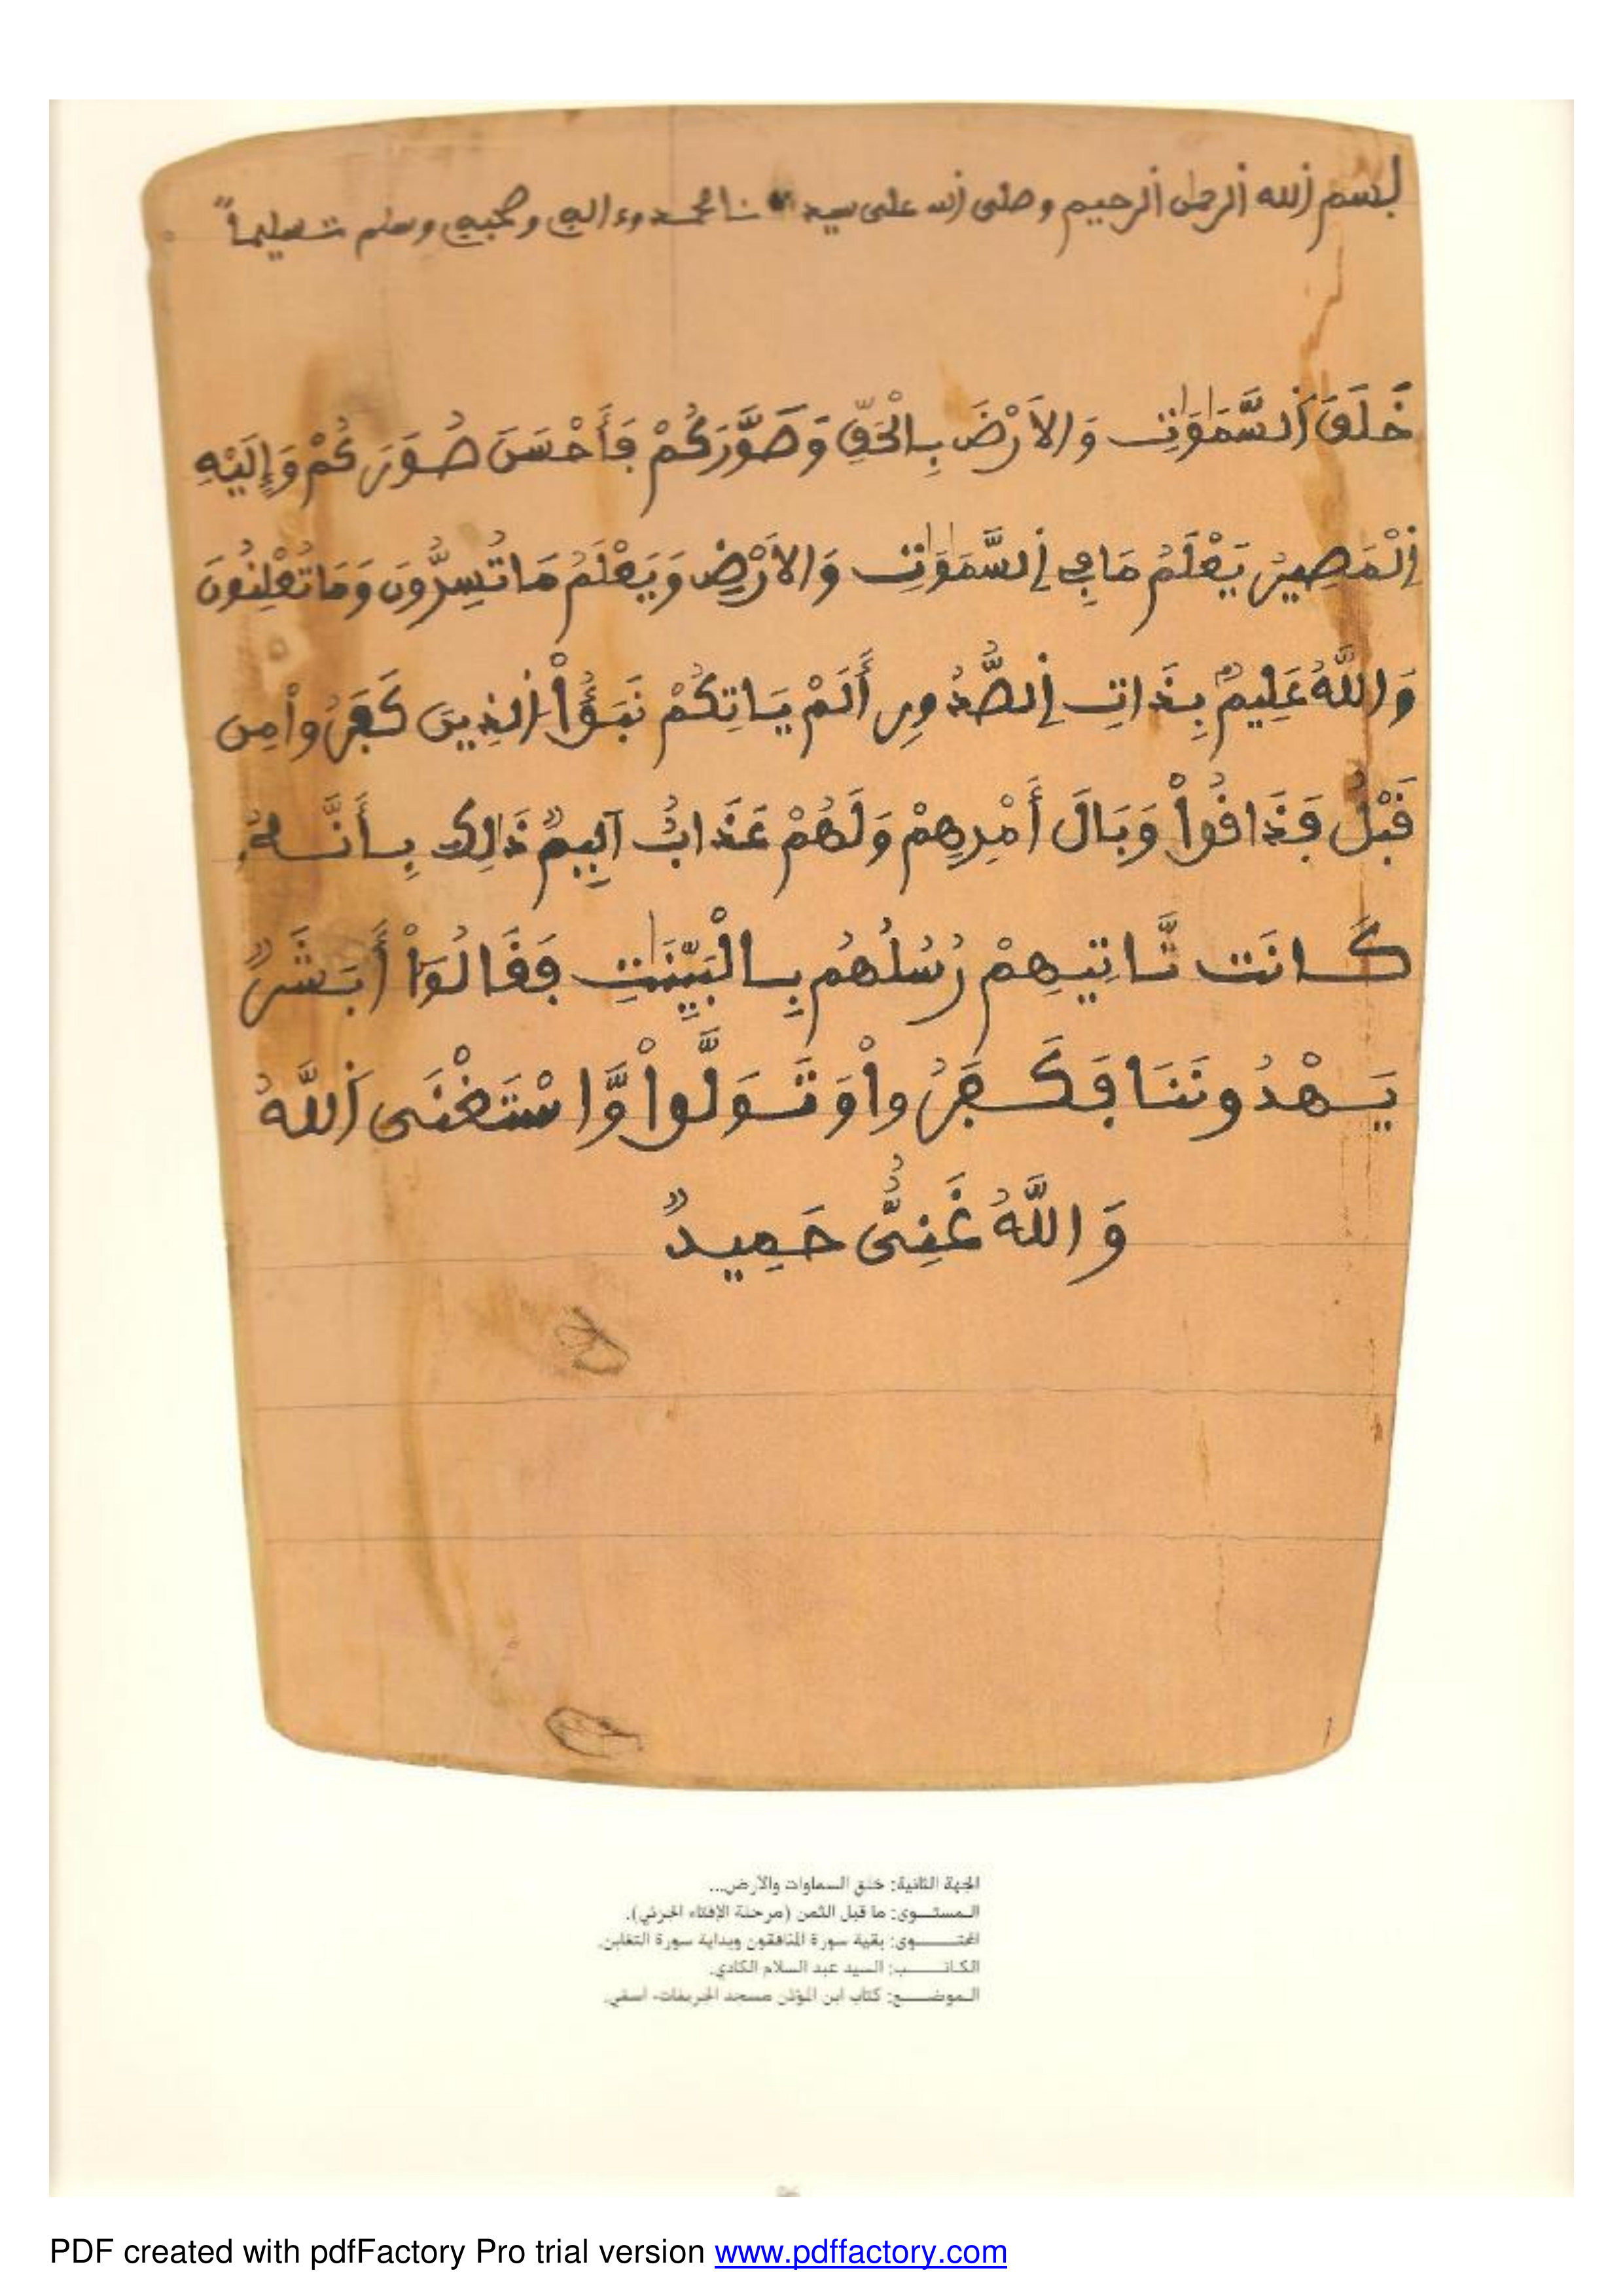 بسم الله الرحمن الرحيم وصلى الله على سيدنا محمد وءاله وصحبه وسلم تسليماً
خَلَقَ اَ۬لسَّمَٰوَٰتِ وَالَارْضَ بِالْحَقِّ وَصَوَّرَكُمْ فَأَحْسَنَ صُوَرَكُمْ وَإِلَيْهِ
اِ۬لْمَصِيرُ يَعْلَمُ مَا فِے اِ۬لسَّمَٰوَٰتِ وَالَارْضِ وَيَعْلَمُ مَا تُسِرُّونَ وَمَا تُعْلِنُونَ
وَاللَّهُ عَلِيمٌ بِذَاتِ اِ۬لصُّدُورِ أَلَمْ يَاتِكُمْ نَبَؤُاْ اُ۬لذِينَ كَفَرُواْ مِن
قَبْلُ فَذَاقُواْ وَبَالَ أَمْرِهِمْ وَلَهُمْ عَذَابٌ اَلِيمٌ ذَٰلِكَ بِأَنَّهُۥ
كَانَت تَّاتِيهِمْ رُسُلُهُم بِالْبَيِّنَٰتِ فَقَالُوٓاْ أَبَشَرٌ
يَهْدُونَنَا فَكَفَرُواْ وَتَوَلَّواْ وَّاسْتَغْنَى اَ۬للَّهُ
وَاللَّهُ غَنِىٌّ حَمِيدٌ
الجهة الثانية: خلق السماوات والأرض...
المستوى: ما قبل الثمن (مرحلة الإفتاء الجزئي).
المحتوى: بقية سورة المنافقون وبداية سورة التغابن.
الكاتب: السيد عبد السلام الكادي.
الموضع: كتاب ابن المؤذن مسجد الخريفات- آسفي.
PDF created with pdfFactory Pro trial version www.pdffactory.com